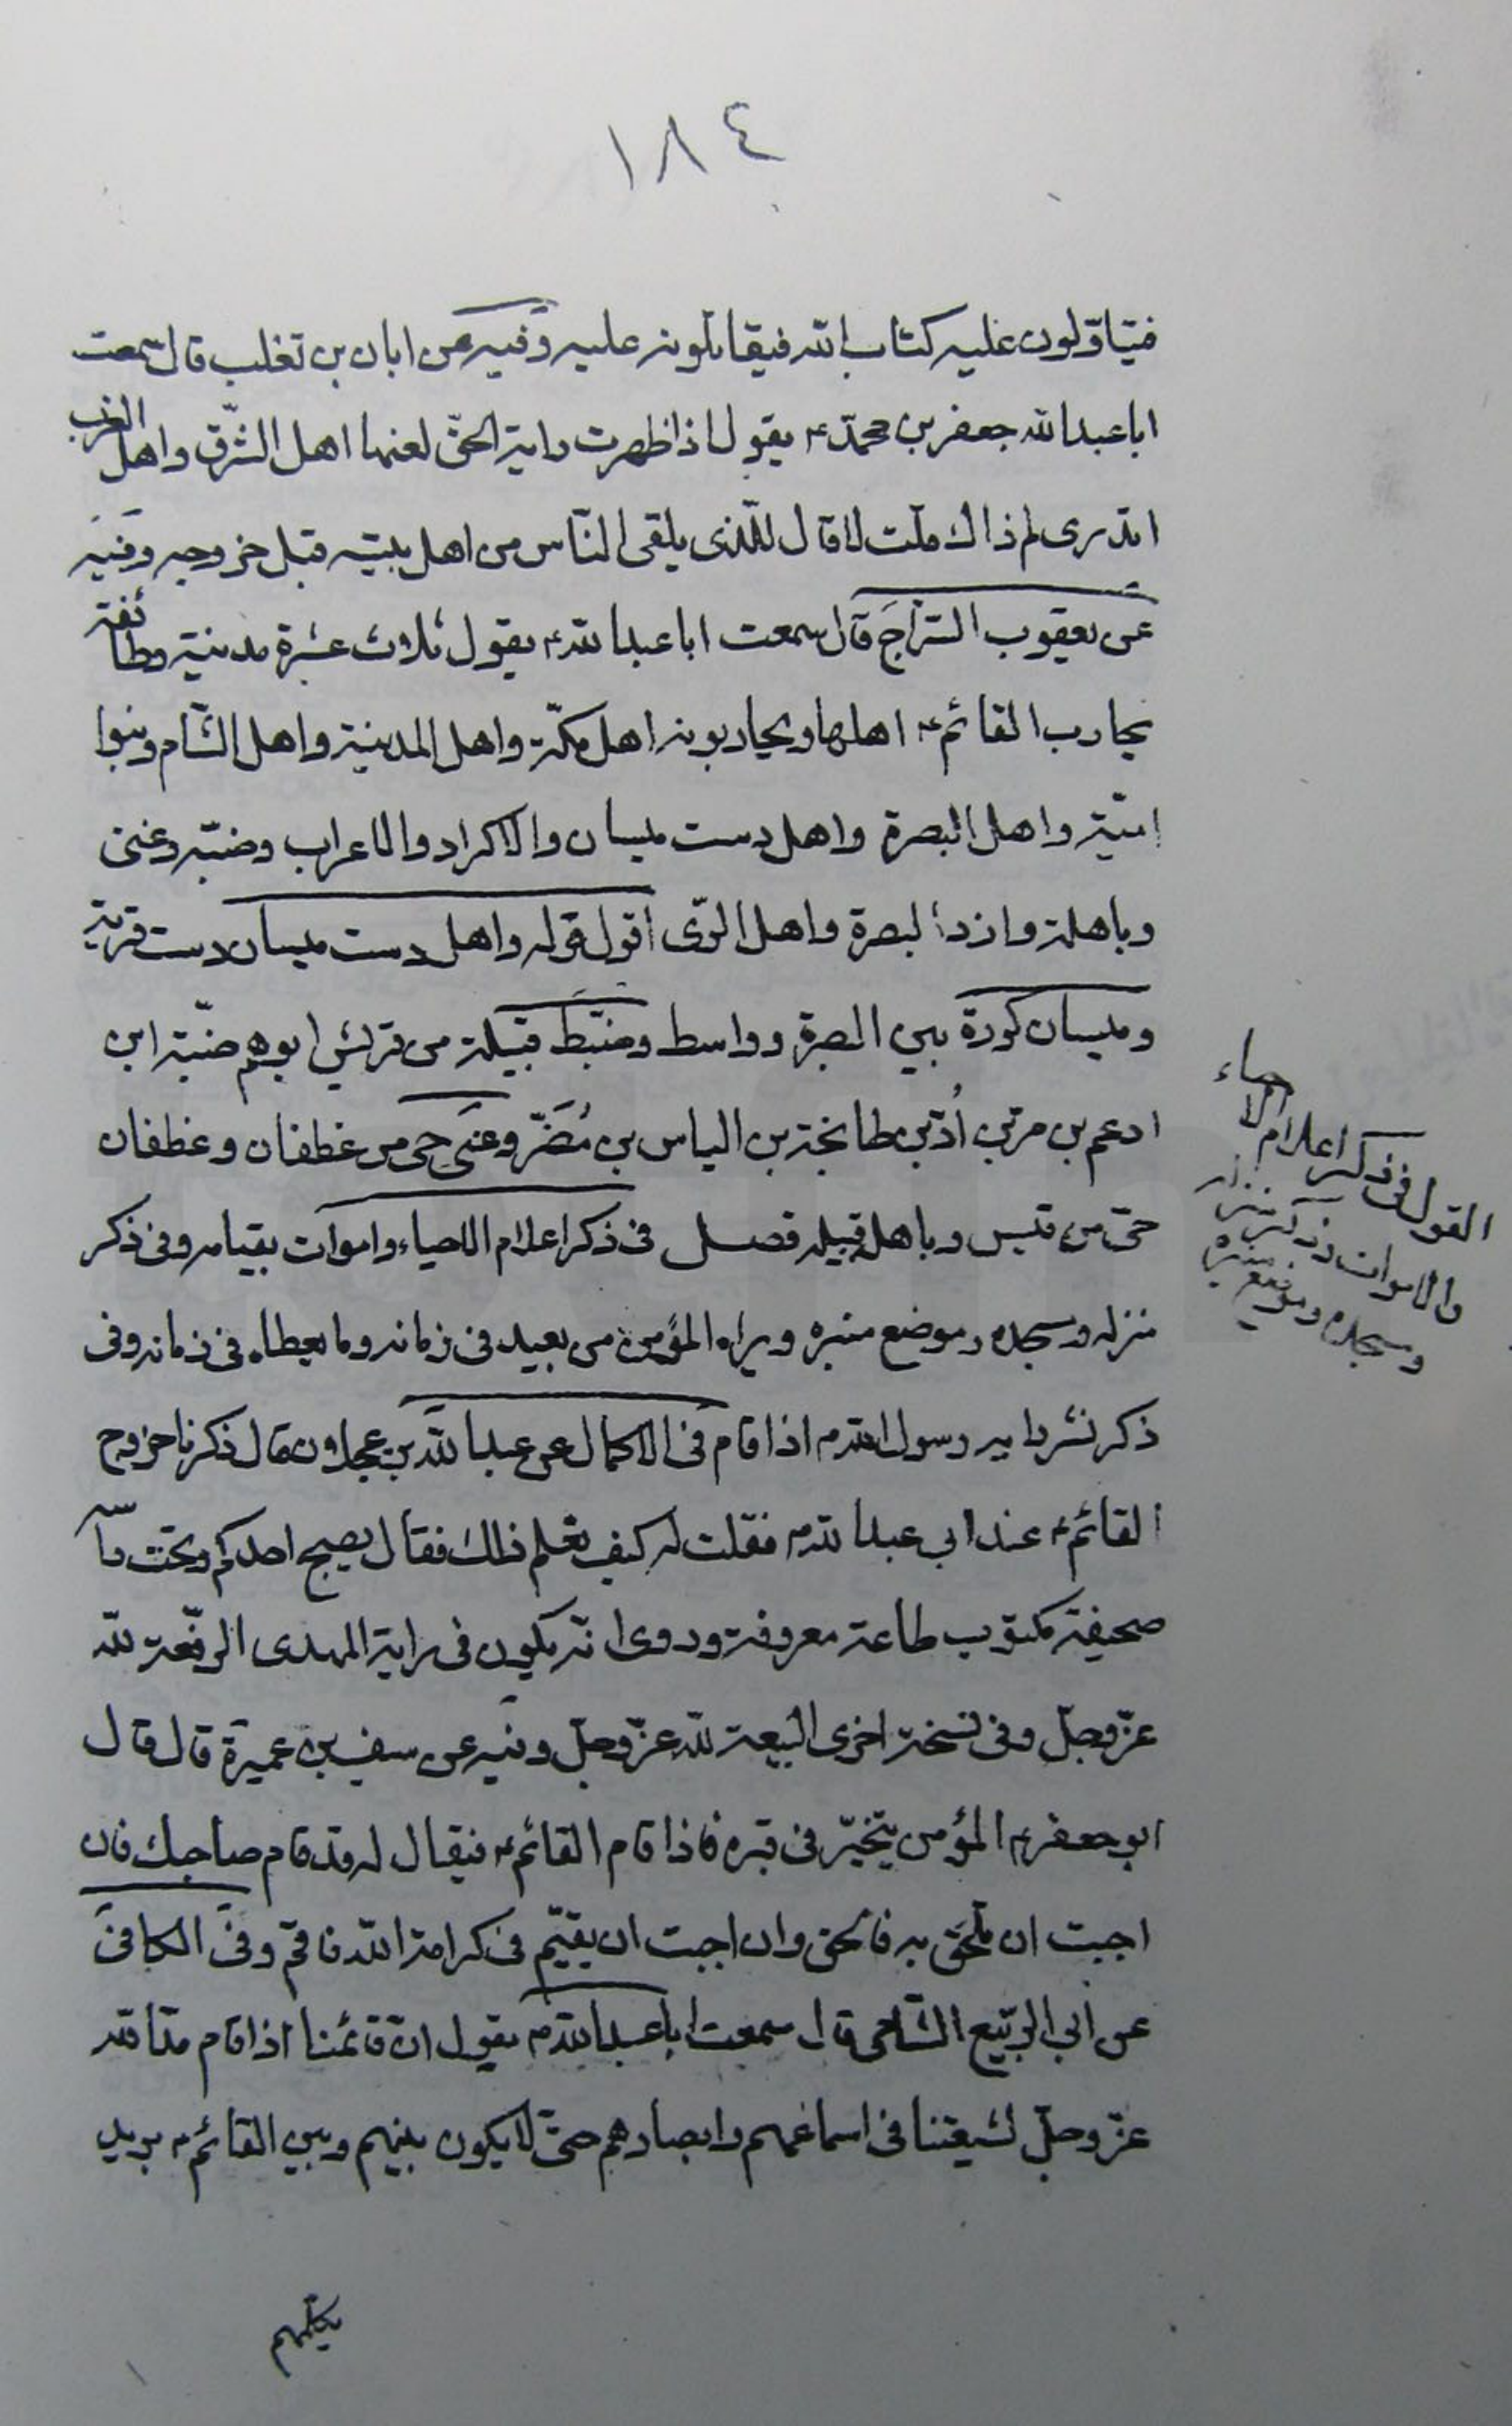 ١٨٤
فيتاوّلون عليه كتاب الله فيقاتلونه عليه وفيه عن ابان بن تغلب قال سمعت
ابا عبدالله جعفر بن محمّد ع يقول اذا ظهرت راية الحقّ لعنها اهل الشّرق واهل الغرب
اتدرى لم ذاك قلت لا قال للّذى يلقى النّاس من اهل بيته قبل خروجه وفيه
عن يعقوب السّراج قال سمعت ابا عبدالله ع يقول ثلاث عشرة مدينة وطائفة
يحارب القائم ع اهلها ويحاربونه اهل مكّة واهل المدينة واهل الشّام وبنوا
اميّة واهل البصرة واهل دست ميسان والاكراد والاعراب وضبّة وغنى
وباهلة وازد البصرة واهل الرّى اقول قوله واهل دست ميسان دست قرية
وميسان كورة بين البصرة وواسط وضبّة قبيلة من قريش ابوهم ضبّة ابن
ادعم بن مر بن اُدّ بن طابخة بن الياس بن مُضَر وغنى حى من غطفان وغطفان
حىّ من قيس وباهلة قبيلة فصل فى ذكر اعلام الاحياء واموات بقيامه وفى ذكر
منزله ومسجده وموضع منبره ويراه المؤمن من بعيد فى زمانه وما يعطاه فى زمانه وفى
ذكر نشر راية رسول الله ص اذا قام فى الاكمال عن عبدالله بن عجلان قال ذكرنا خروج
القائم ع عند ابى عبدالله ع فقلت له كيف نعلم ذلك فقال يصبح احدكم وتحت راسه
صحيفة مكتوب طاعة معروفة وروى انّه يكون فى راية المهدى الرّفعة لله
عزّ وجلّ وفى نسخة اخرى البيعة لله عزّ وجلّ وفيه عن سيف بن عميرة قال قال
ابو جعفر ع المؤمن يتخيّر فى قبره فاذا قام القائم ع فيقال له قد قام صاحبك فان
احببت ان تلحق به فالحق وان احببت ان يقيم فى كرامة الله فاقم وفى الكافى
عن ابى الرّبيع الشّامى قال سمعت ابا عبدالله ع يقول انّ قائمنا اذا قام مدّ الله
عزّ وجلّ لشيعتنا فى اسماعهم وابصارهم حتىّ لا يكون بينهم وبين القائم ع بريد
يكلّمهم
القول فى ذكر اعلام الاحياء
والاموات وذكر منزله
ومسجده وموضع منبره